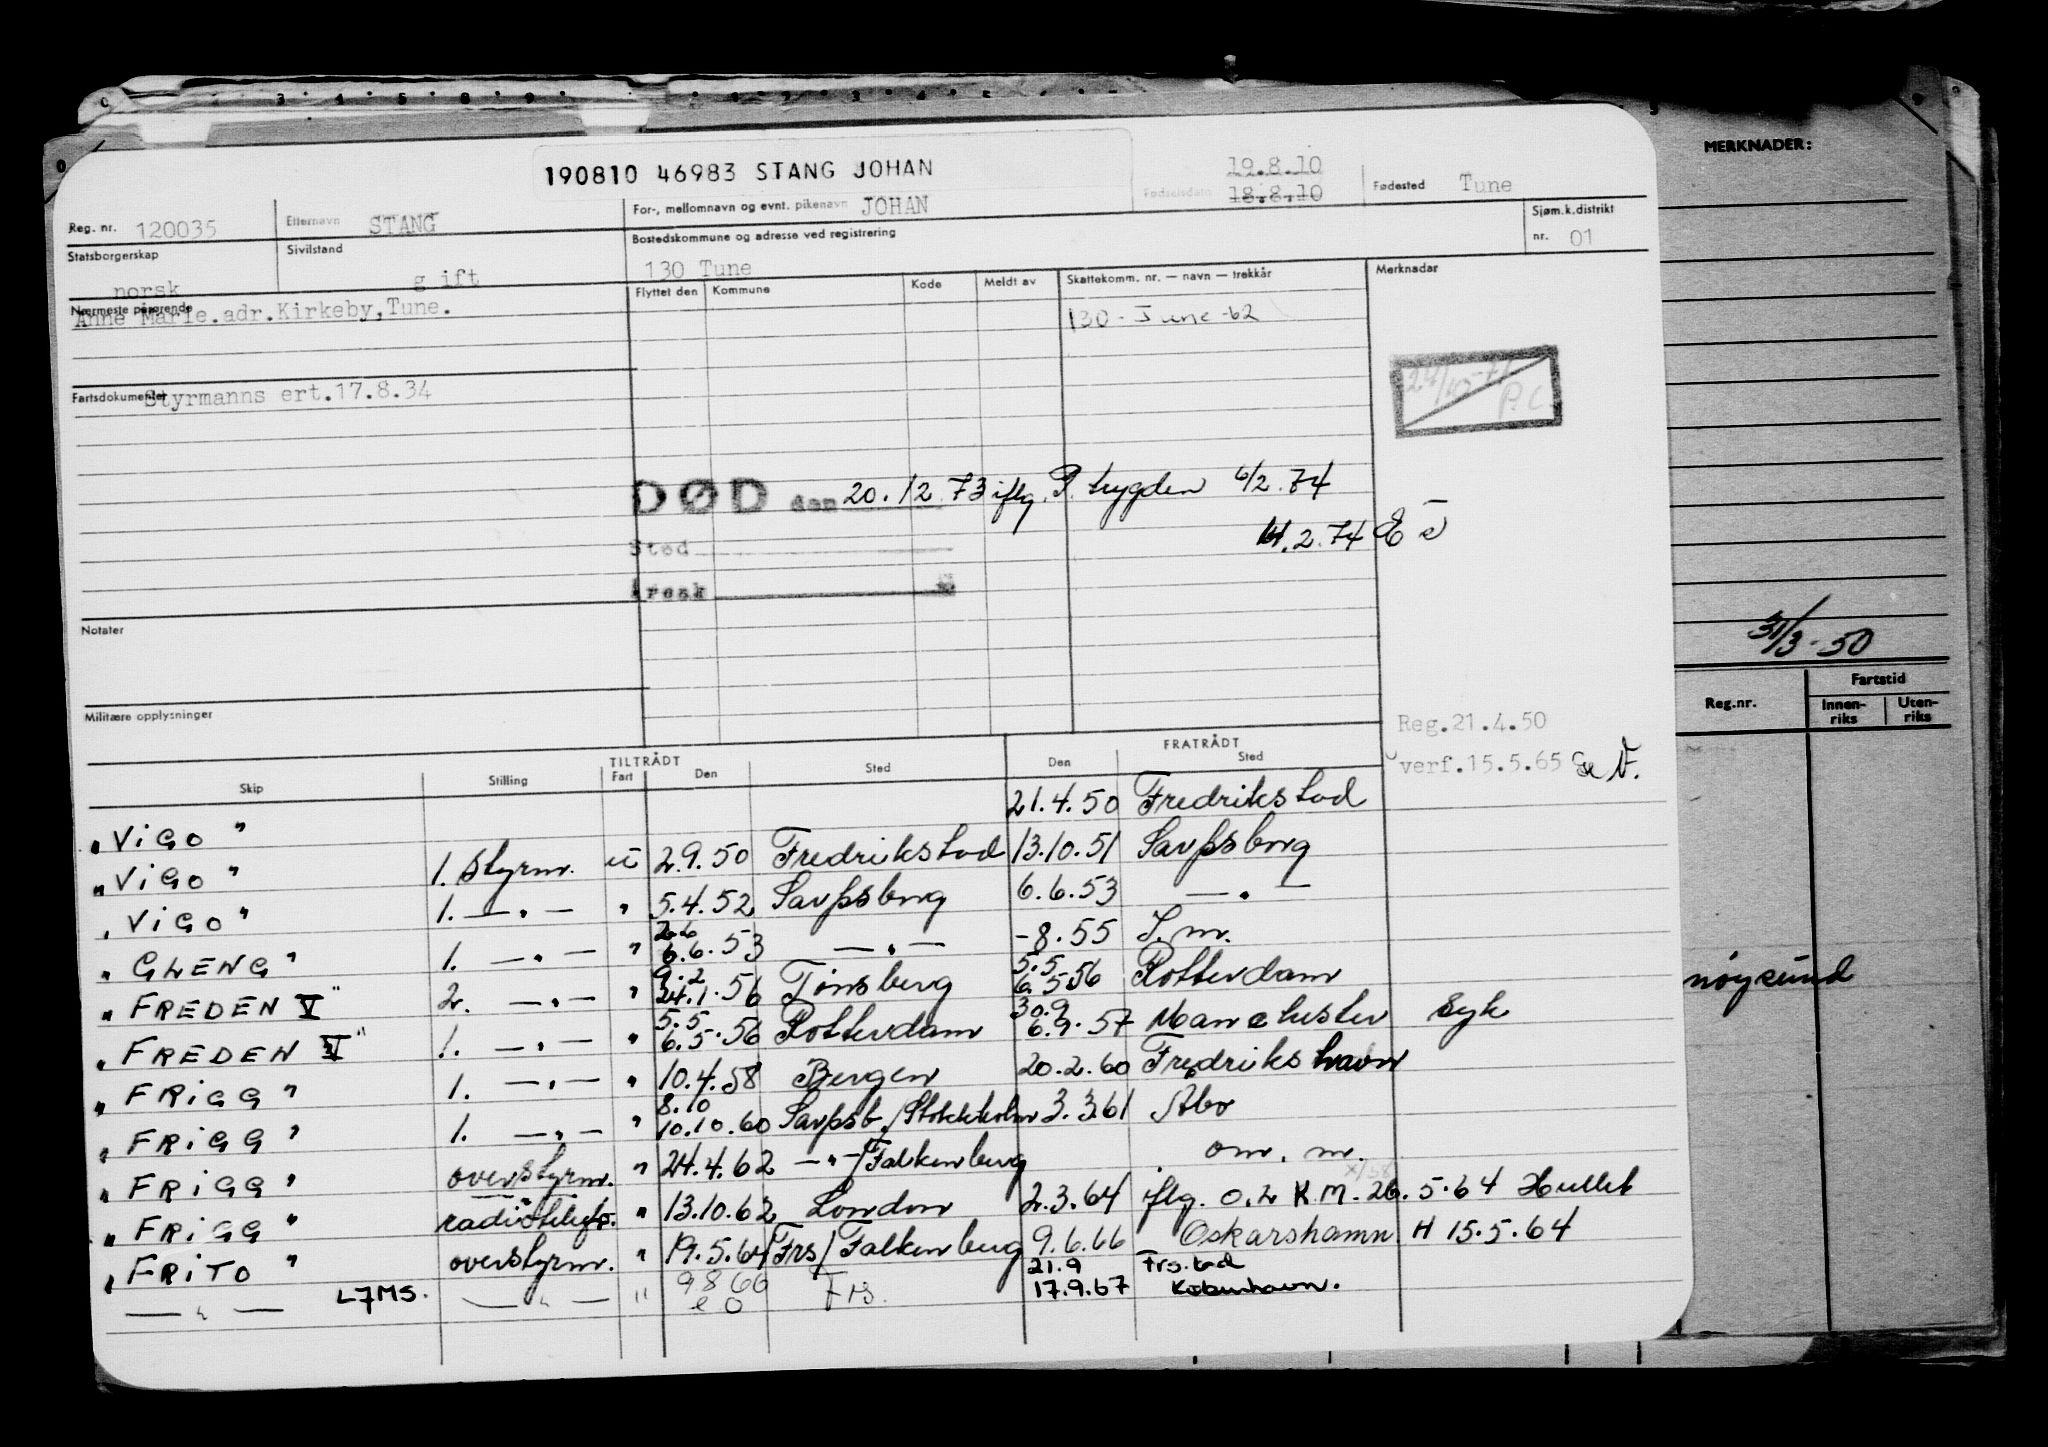 MERKNADER:
190810 46983 STANG JOHAN
Reg. nr. 120035 Etternavn STANG For-, mellomnavn og evnt. pikenavn JOHAN Fødselsdato 19.8.10 18.8.10 Fødested Tune
Statsborgerskap norsk Sivilstand gift Bostedskommune og adresse ved registrering 130 Tune Sjøm.k.distrikt nr. 01
Nærmeste pårørende Anne Marie.adr.Kirkeby,Tune.
Flyttet den Kommune Kode Meldt av Skattekomm. nr. — navn — trekkår Merknader
130 - Tune -62
Fartsdokumenter Styrmanns ert.17.8.34
24/10-71 P.C
DØD den 20.12.73 iflg. P. trygden 6/2.74
Sted 14.2.74
Årsak
Notater
31/3-50
Militære opplysninger
Reg.nr. Fartstid
Innen-riks Uten-riks
Reg.21.4.50
verf.15.5.65
TILTRÅDT FRATRÅDT
Skip Stilling Fart Den Sted Den Sted
"VIGO" 21.4.50 Fredrikstad
"VIGO" 1. styrm. u 2.9.50 Fredrikstad 13.10.51 Sarpsborg
"VIGO" 1. —"— " 5.4.52 Sarpsborg 6.6.53 —"—
"GLENG" 1. —"— " 26 6.6.53 —"— -8.55 S.m.
"FREDEN V" 2. —"— " 9.2 24.1.56 Tönsberg 5.5 6.5.56 Rotterdam
"FREDEN V" 1. —"— " 5.5 6.5.56 Rotterdam 30.9 6.9.57 Manchester syk
"FRIGG" 1. —"— " 10.4.58 Bergen 20.2.60 Fredrikshavn
"FRIGG" 1. —"— " 8.10 10.10.60 Sarpsb./Stockholm 3.3.61 Abo
"FRIGG" overstyrm. " 24.4.62 —"—/Falkenberg om. m.
"FRIGG" radiotelefo. " 13.10.62 London 2.3.64 iflg. O.L K.M. 26.5.64 Hullet
"FRITO" overstyrm. " 19.5.64 Frs/Falkenberg 9.6.66 Oskarshamn H 15.5.64
—"— LJMS. —"— " 9 8 66 Frs. 21.9 17.9.67 Frs.tad København.
nøysund